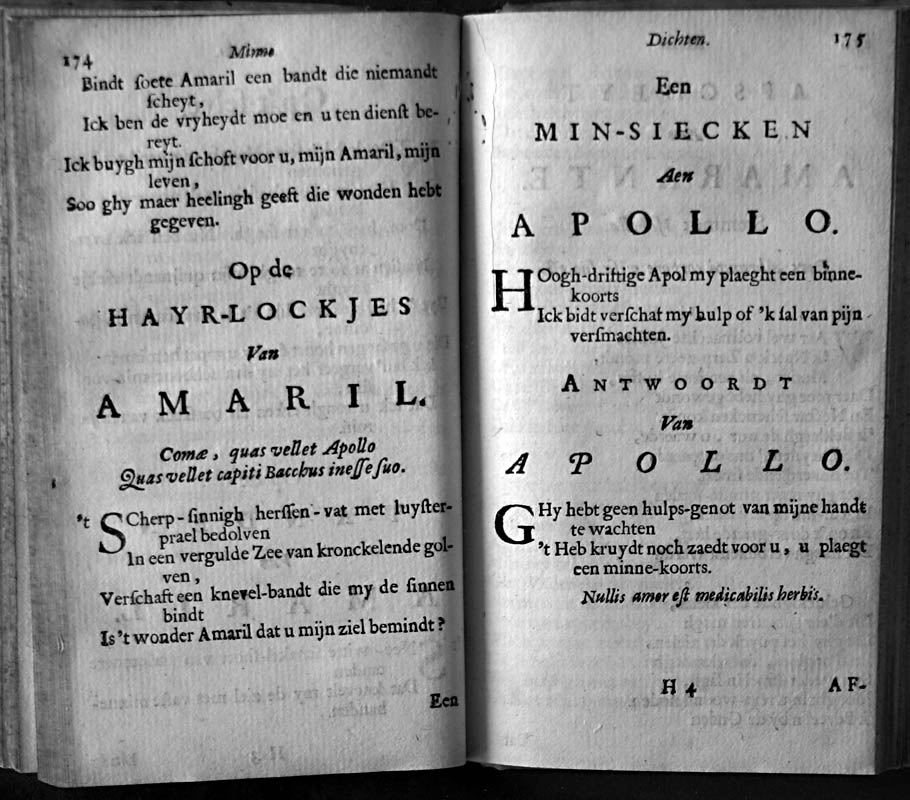 174
Minne
Bindt ſoete Amaril een bandt die niemandt
ſcheyt,
Ick ben de vryheydt moe en u ten dienſt be-
reyt.
Ick buygh mijn ſchoft voor u, mijn Amaril, mijn
leven,
Soo ghy maer heelingh geeft die wonden hebt
gegeven.
Op de
HAYR-LOCKJES
Van
AMARIL.
Comæ, quas vellet Apollo
Quas vellet capiti Bacchus ineſſe ſuo.
't SCherp-ſinnigh herſſen-vat met luyſter-
prael bedolven
In een vergulde Zee van kronckelende gol-
ven,
Verſchaft een knevel-bandt die my de ſinnen
bindt
Is 't wonder Amaril dat u mijn ziel bemindt?
Een
Dichten.
175
Een
MIN-SIECKEN
Aen
APOLLO.
HOogh-driftige Apol my plaeght een binne-
koorts
Ick bidt verſchaf my hulp of 'k ſal van pijn
verſmachten.
ANTWOORDT
Van
APOLLO.
GHy hebt geen hulps-genot van mijne handt
te wachten
't Heb kruydt noch zaedt voor u, u plaegt
een minne-koorts.
Nullis amor eſt medicabilis herbis.
H 4
AF-